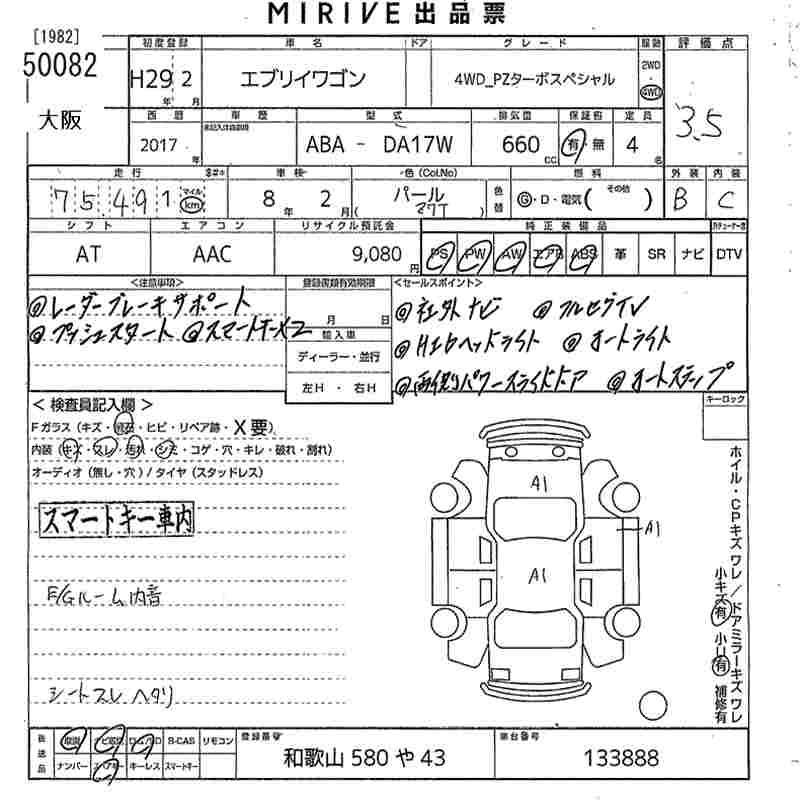 MIRIVE 出品票
[1982]
50082
大阪
初度登録 車名 ドア グレード 駆動 評価点
H29 2 年 月 エブリイワゴン 4WD_PZターボスペシャル 2WD・4WD 3.5
西暦 車歴 型式 排気量 保証書 定員
2017 年 ABA - DA17W 660 CC 有・無 4 名
走行 車検 色(Col.No) 燃料 外装 内装
75,491 マイル km 8 年 2 月 パール 色替 G・D・電気( その他 ) B C
シフト エアコン リサイクル預託金 純正装備品
AT AAC 9,080 円 PS PW AW エアB ABS 革 SR ナビ DTV
<注意事項> 登録書類有効期限 <セールスポイント>
◎レーダーブレーキサポート
◎プッシュスタート ◎スマートキー×2
月 日
輸入車
ディーラー・並行
左H ・ 右H
◎社外ナビ ◎フルセグTV
◎HIDヘッドライト ◎オートライト
◎両側パワースライドドア ◎オートステップ
キーロック
<検査員記入欄>
Fガラス(キズ・飛石・ヒビ・リペア跡・X要)
内装(キズ・スレ・汚れ・シミ・コゲ・穴・キレ・破れ・割れ)
オーディオ(無し・穴)/タイヤ(スタッドレス)
スマートキー車内
E/Gルーム内音
シートスレ ヘタリ
A1
A1
A1
ホイル・CPキズ ワレ/ドアミラーキズ ワレ
小キズ有 小凹有 補修有
後送品 取説 ナビ電源 ロム/CD B-CAS リモコン
ナンバー スペアキー キーレス スマートキー
登録番号 和歌山 580 や 43
車台番号 133888